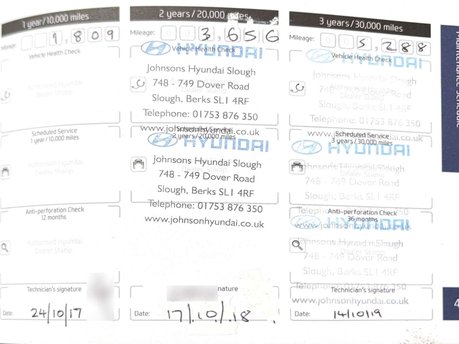 1 year/10,000 miles
Mileage: 1,809
Vehicle Health Check
Scheduled Service
1 year/10,000 miles
Anti-perforation Check
12 months
Technician's signature
Date: 24/10/17
2 years/20,000 miles
Mileage: 3,656
Vehicle Health Check
HYUNDAI
Johnsons Hyundai Slough
748 - 749 Dover Road
Slough, Berks SL1 4RF
Telephone: 01753 876 350
www.johnsonhyundai.co.uk
Scheduled Service
2 years/20,000 miles
HYUNDAI
Johnsons Hyundai Slough
748 - 749 Dover Road
Slough, Berks SL1 4RF
Telephone: 01753 876 350
www.johnsonhyundai.co.uk
nature
Date: 17/10/18.
3 years/30,000 miles
Mileage: 5,288
Vehicle Health Check
HYUNDAI
Johnsons Hyundai Slough
748 - 749 Dover Road
Slough, Berks SL1 4RF
Telephone: 01753 876 350
www.johnsonhyundai.co.uk
Scheduled Service
3 years/30,000 miles
HYUNDAI
Johnsons Hyundai Slough
748 - 749 Dover Road
Slough, Berks SL1 4RF
Telephone: 01753 876 350
www.johnsonhyundai.co.uk
Anti-perforation Check
36 months
HYUNDAI
Johnsons Hyundai Slough
748 - 749 Dover Road
Slough, Berks SL1 4RF
Telephone: 01753 876 350
www.johnsonhyundai.co.uk
Technician's signature
Date: 14/10/19
Maintenance Schedule
4